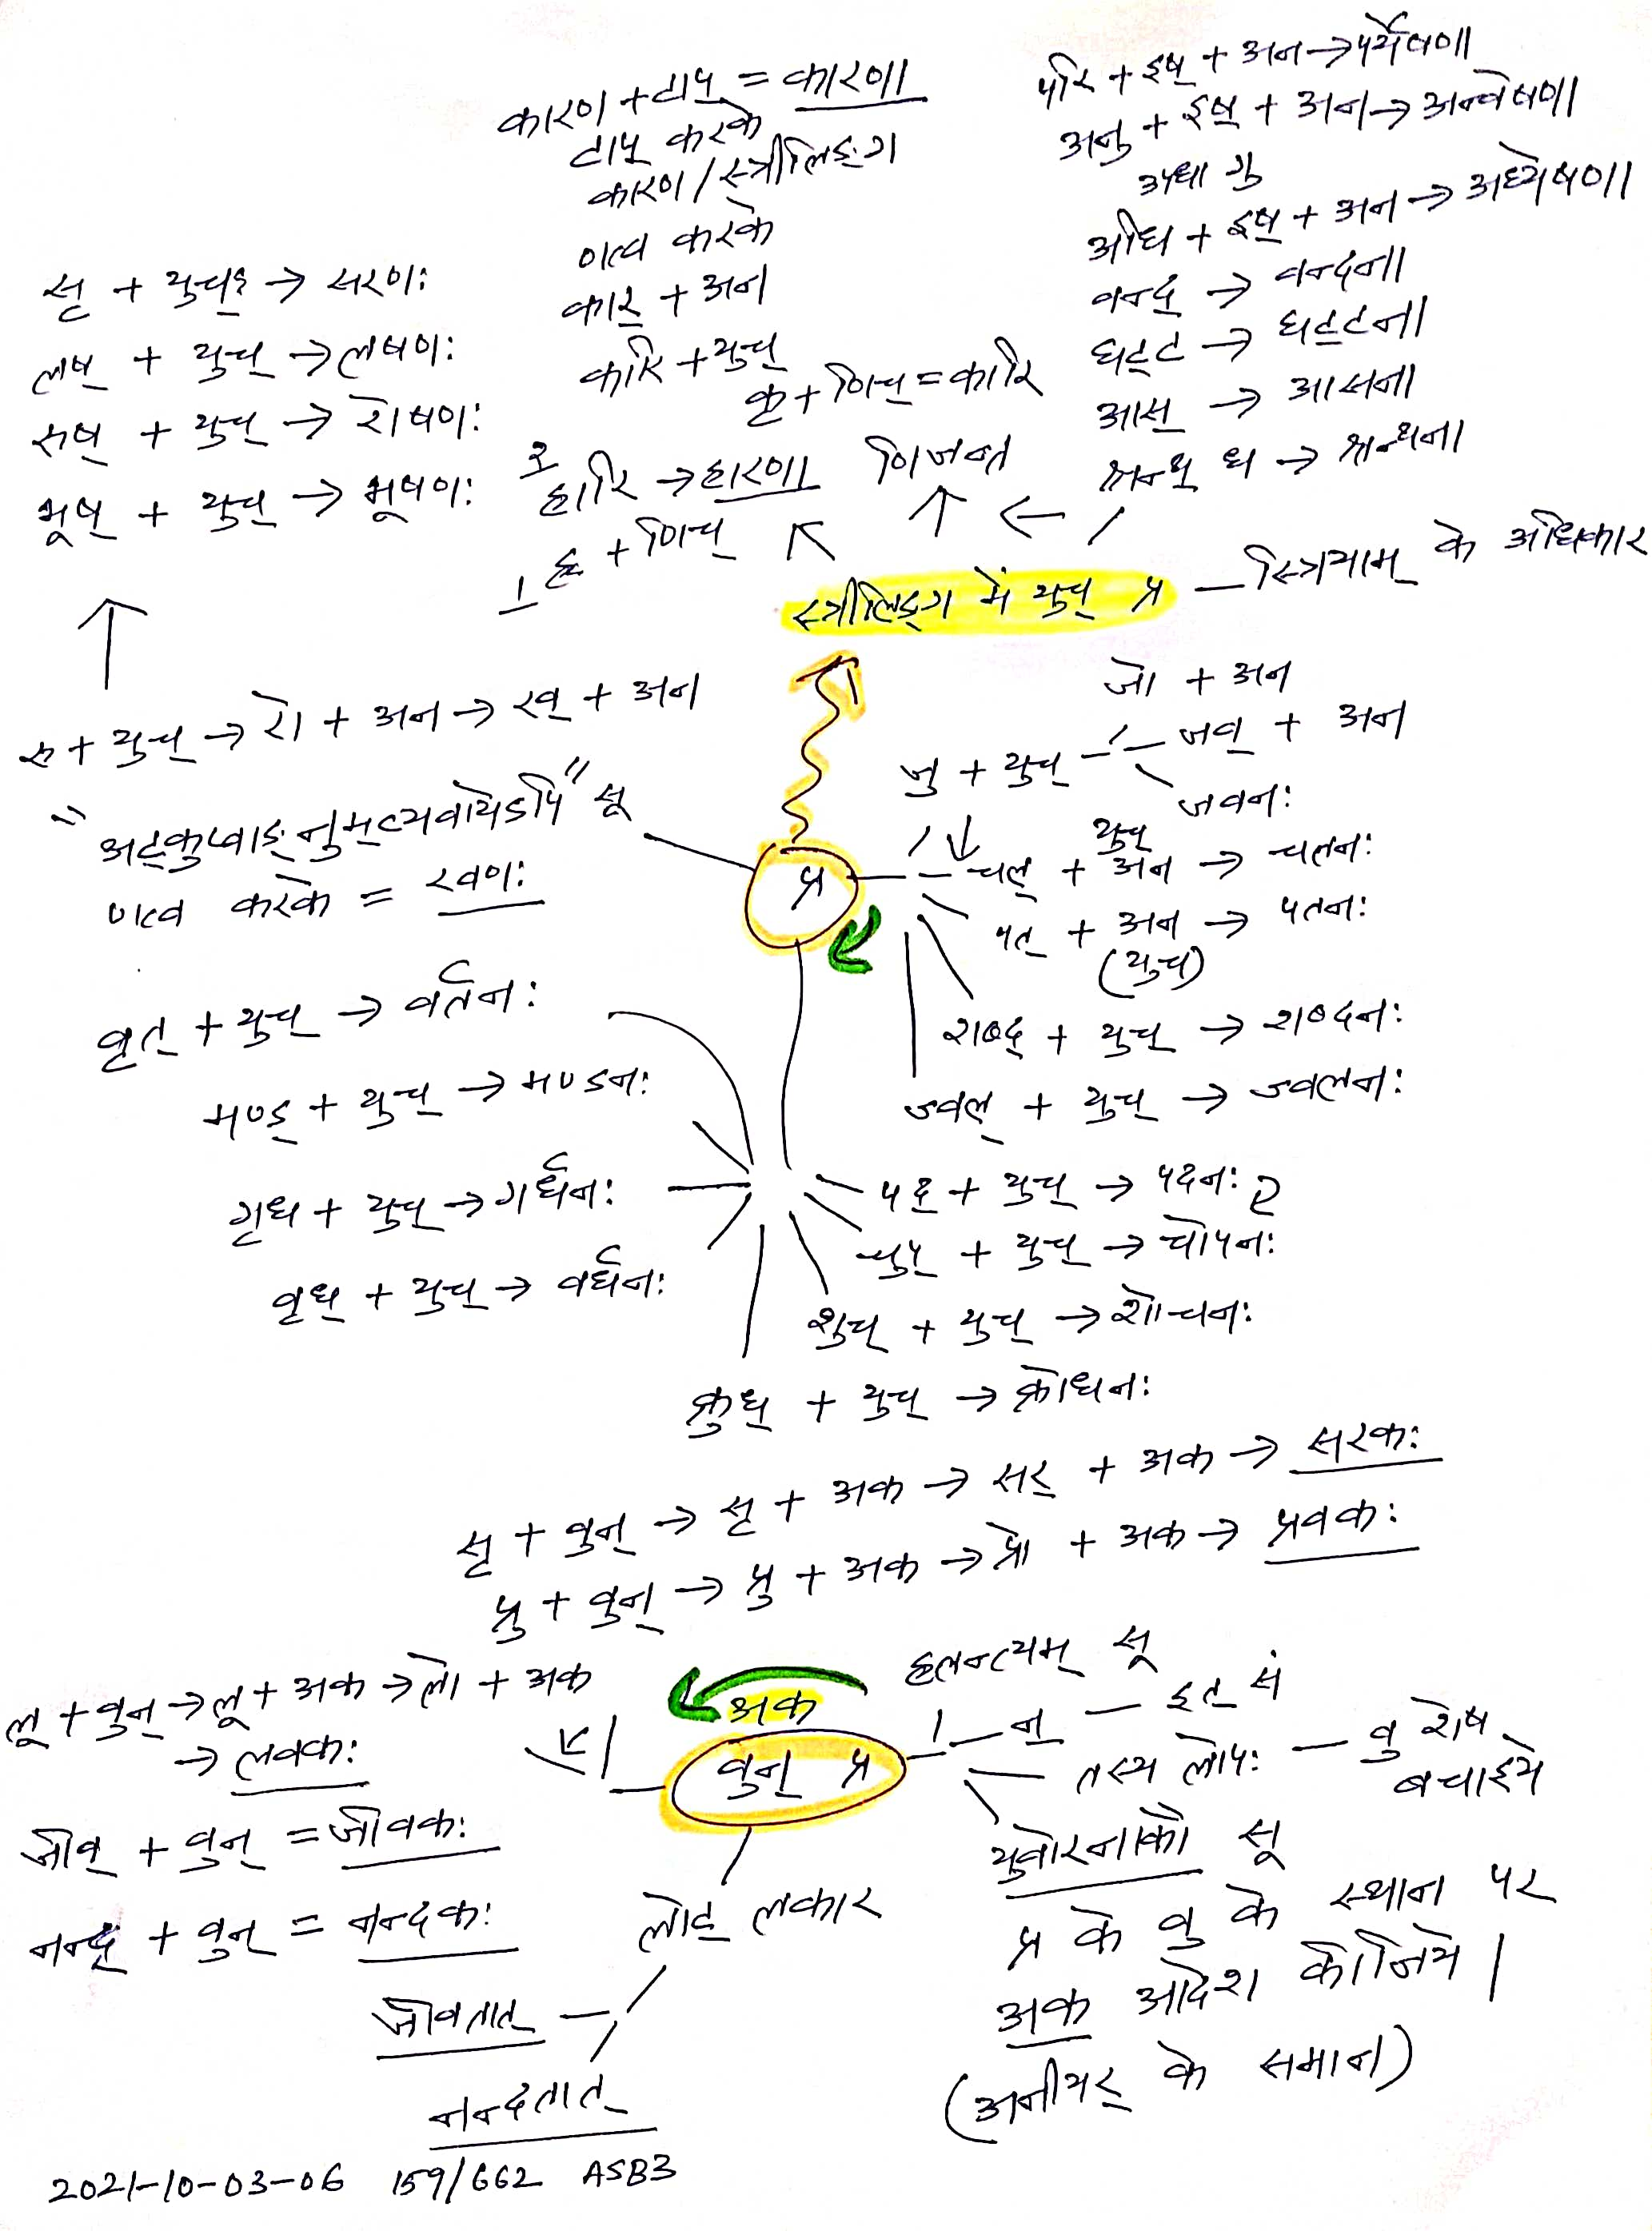 कारण + टाप् = कारणा
टाप् करके
कारण / स्त्रीलिङ्ग
णत्व करके
कार् + अन
कारि + युच्
कृ + णिच् = कारि
णिजन्त
२ हारि → हारणा
१ हृ + णिच्
परि + इष् + अन → पर्येषणा
अनु + इष् + अन → अन्वेषणा
अधि + इष् + अन → अध्येषणा
वन्द् → वन्दना
घट्ट् → घट्टना
आस् → आसना
श्रन्थ् → श्रन्थना
स्त्रीलिङ्ग में युच् प्र — स्त्रियाम् के अधिकार
सृ + युच् → सरणः
लष् + युच् → लषणः
रुष् + युच् → रोषणः
भूष् + युच् → भूषणः
रु + युच् → रो + अन → रव् + अन
"अट्कुप्वाङ्नुम्व्यवायेऽपि" सू
णत्व करके = रवणः
प्र
जो + अन
जु + युच् — जव् + अन
जवनः
युच्
चल् + अन → चलनः
पत् + अन → पतनः
(युच्)
शब्द् + युच् → शब्दनः
ज्वल् + युच् → ज्वलनः
वृत् + युच् → वर्तनः
मण्ड् + युच् → मण्डनः
गृध + युच् → गर्धनः
वृध् + युच् → वर्धनः
पद् + युच् → पदनः
चुप् + युच् → चोपनः
शुच् + युच् → शोचनः
क्रुध् + युच् → क्रोधनः
सृ + वुन् → सृ + अक → सर् + अक → सरकः
प्रु + वुन् → प्रु + अक → प्रो + अक → प्रवकः
लू + वुन् → लू + अक → लो + अक
→ लवकः
जीव् + वुन् = जीवकः
नन्द् + वुन् = नन्दकः
अक
वुन् प्र
हलन्त्यम् सू
न् — इत् सं
तस्य लोपः — वु शेष
बचाइये
युवोरनाकौ सू
प्र के वु के स्थान पर
अक आदेश कीजिये |
(अनीयर् के समान)
लोट् लकार
जीवतात्
नन्दतात्
2021-10-03-06 159/662 ASB3